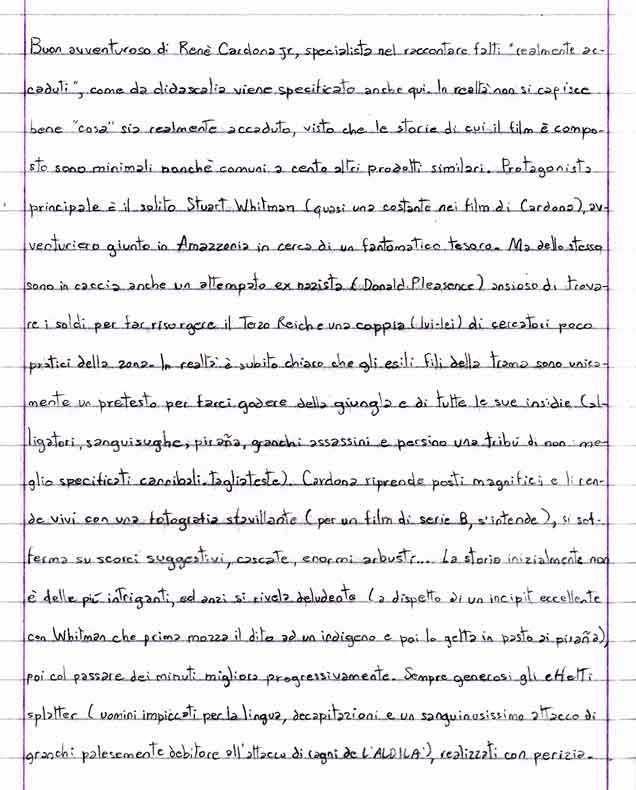 Buon avventuroso di Renè Cardona jr, specialista nel raccontare fatti "realmente ac-
caduti", come da didascalia viene specificato anche qui. In realtà non si capisce
bene "cosa" sia realmente accaduto, visto che le storie di cui il film è compo-
sto sono minimali nonchè comuni a cento altri prodotti similari. Protagonista
principale è il solito Stuart Whitman (quasi una costante nei film di Cardona), av-
venturiero giunto in Amazzonia in cerca di un fantomatico tesoro. Ma dello stesso
sono in caccia anche un attempato ex nazista (Donald Pleasence) ansioso di trova-
re i soldi per far risorgere il Terzo Reich e una coppia (lui-lei) di cercatori poco
pratici della zona. In realtà è subito chiaro che gli esili fili della trama sono unica-
mente un pretesto per farci godere della giungla e di tutte le sue insidie (al-
ligatori, sanguisughe, piraña, granchi assassini e persino una tribù di non me-
glio specificati cannibali-tagliateste). Cardona riprende posti magnifici e li ren-
de vivi con una fotografia sfavillante (per un film di serie B, s'intende), si sof-
ferma su scorci suggestivi, cascate, enormi arbusti... La storia inizialmente non
è delle più intriganti, ed anzi si rivela deludente (a dispetto di un incipit eccellente
con Whitman che prima mozza il dito ad un indigeno e poi lo getta in pasto ai piraña),
poi col passare dei minuti migliora progressivamente. Sempre generosi gli effetti
splatter (uomini impiccati per la lingua, decapitazioni e un sanguinusissimo attacco di
granchi palesemente debitore all'attacco di ragni de L'ALDILA'), realizzati con perizia.